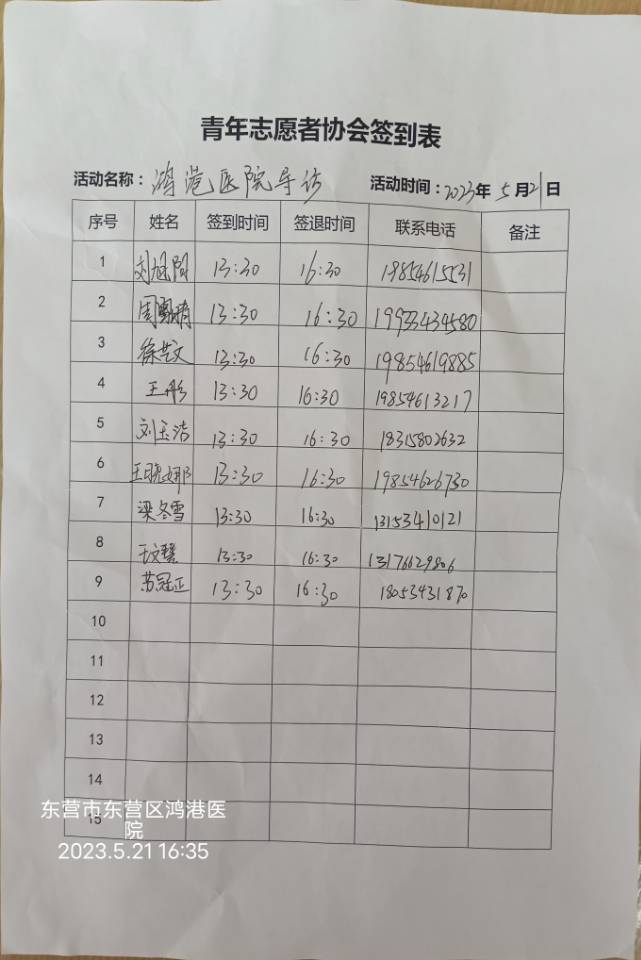 青年志愿者协会签到表
活动名称：鸿港医院导诊 活动时间：2023年5月21日
序号 姓名 签到时间 签退时间 联系电话 备注
1 刘旭阳 13:30 16:30 19854615531
2 13:30 16:30 19933434580
3 徐艺文 13:30 16:30 19854619885
4 王彤 13:30 16:30 19854613217
5 刘玉洁 13:30 16:30 18315802632
6 王晓娜 13:30 16:30 19854626730
7 梁冬雪 13:30 16:30 13153410121
8 13:30 16:30 13176629806
9 苏冠正 13:30 16:30 18053431870
10
11
12
13
14
15
东营市东营区鸿港医
院
2023.5.21 16:35